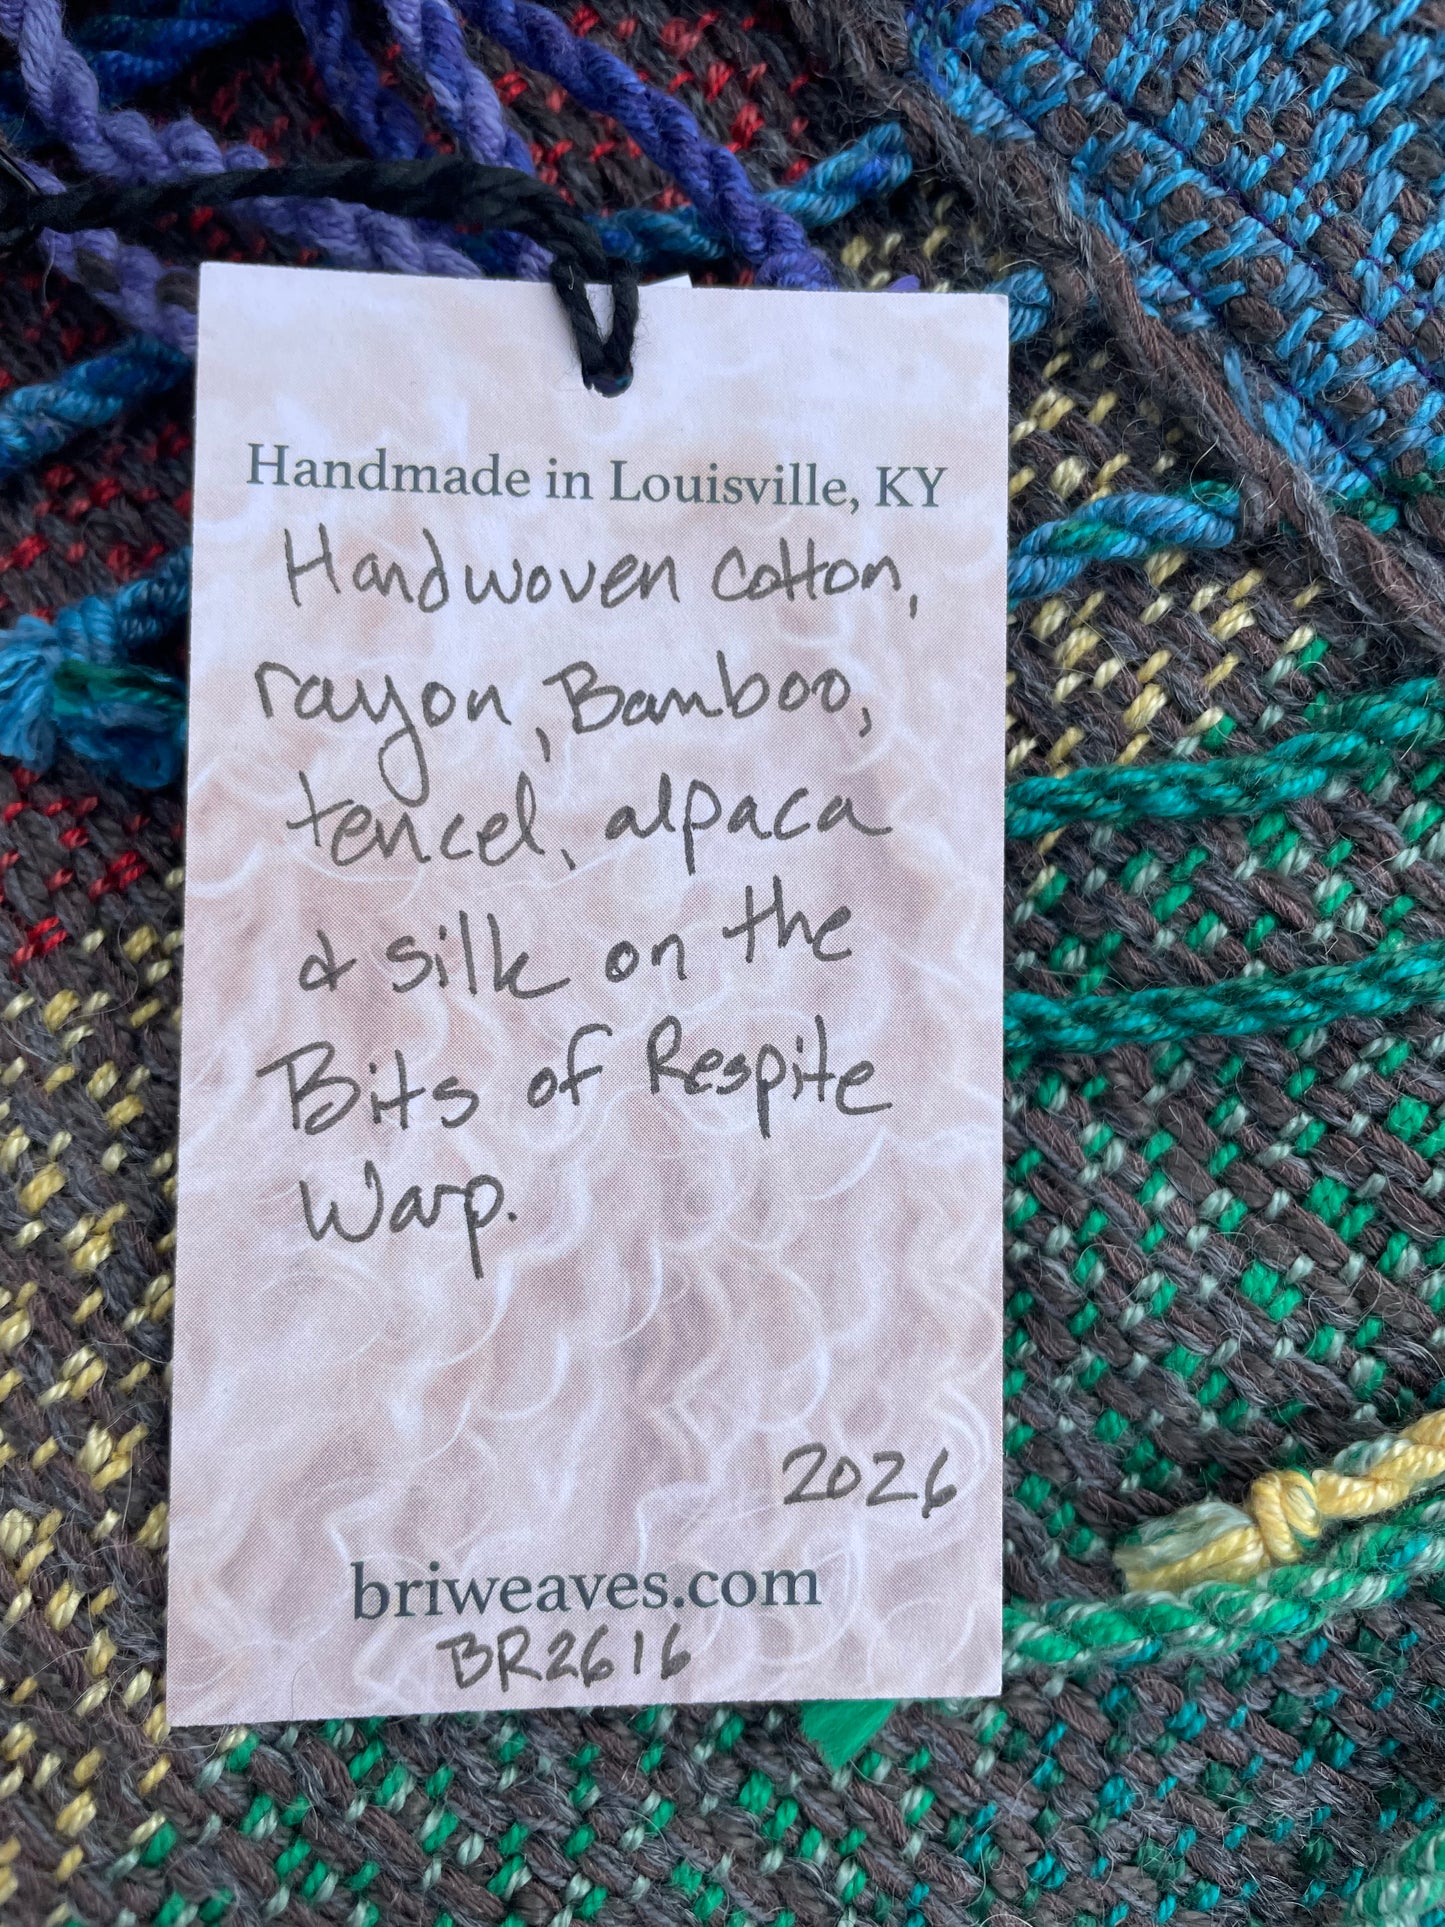 Handmade in Louisville, KY
Handwoven cotton,
rayon, Bamboo,
tencel, alpaca
& silk on the
Bits of Respite
Warp.
2026
briweaves.com
BR2616